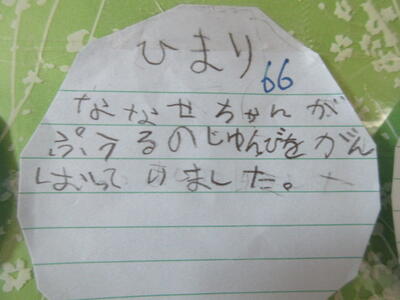 ひまり
66
ななせちゃんが
ぷうるのじゅんびをがん
ばっていました。